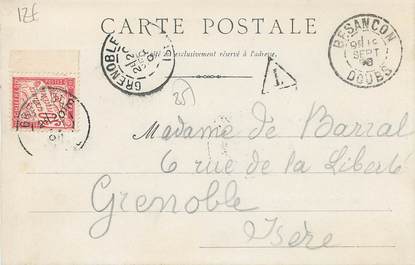 12€
CARTE POSTALE
Ce côté est exclusivement réservé à l'adresse.
GRENOBLE
BESANÇON
SEPT
DOUBS
T
25
Madame de Barral
6 rue de la Liberté
Grenoble
Isère